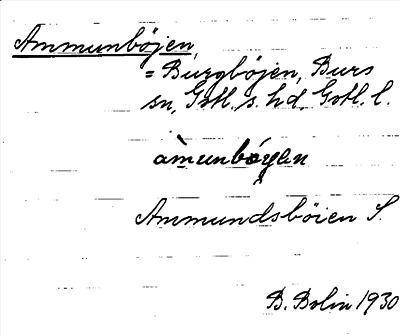 Ammunböjen,
= Burgböjen, Burs
sn, Gotl. s. hd, Gotl. l.
àmunbɷyen
Ammundsböien S.
B. Bolin 1930